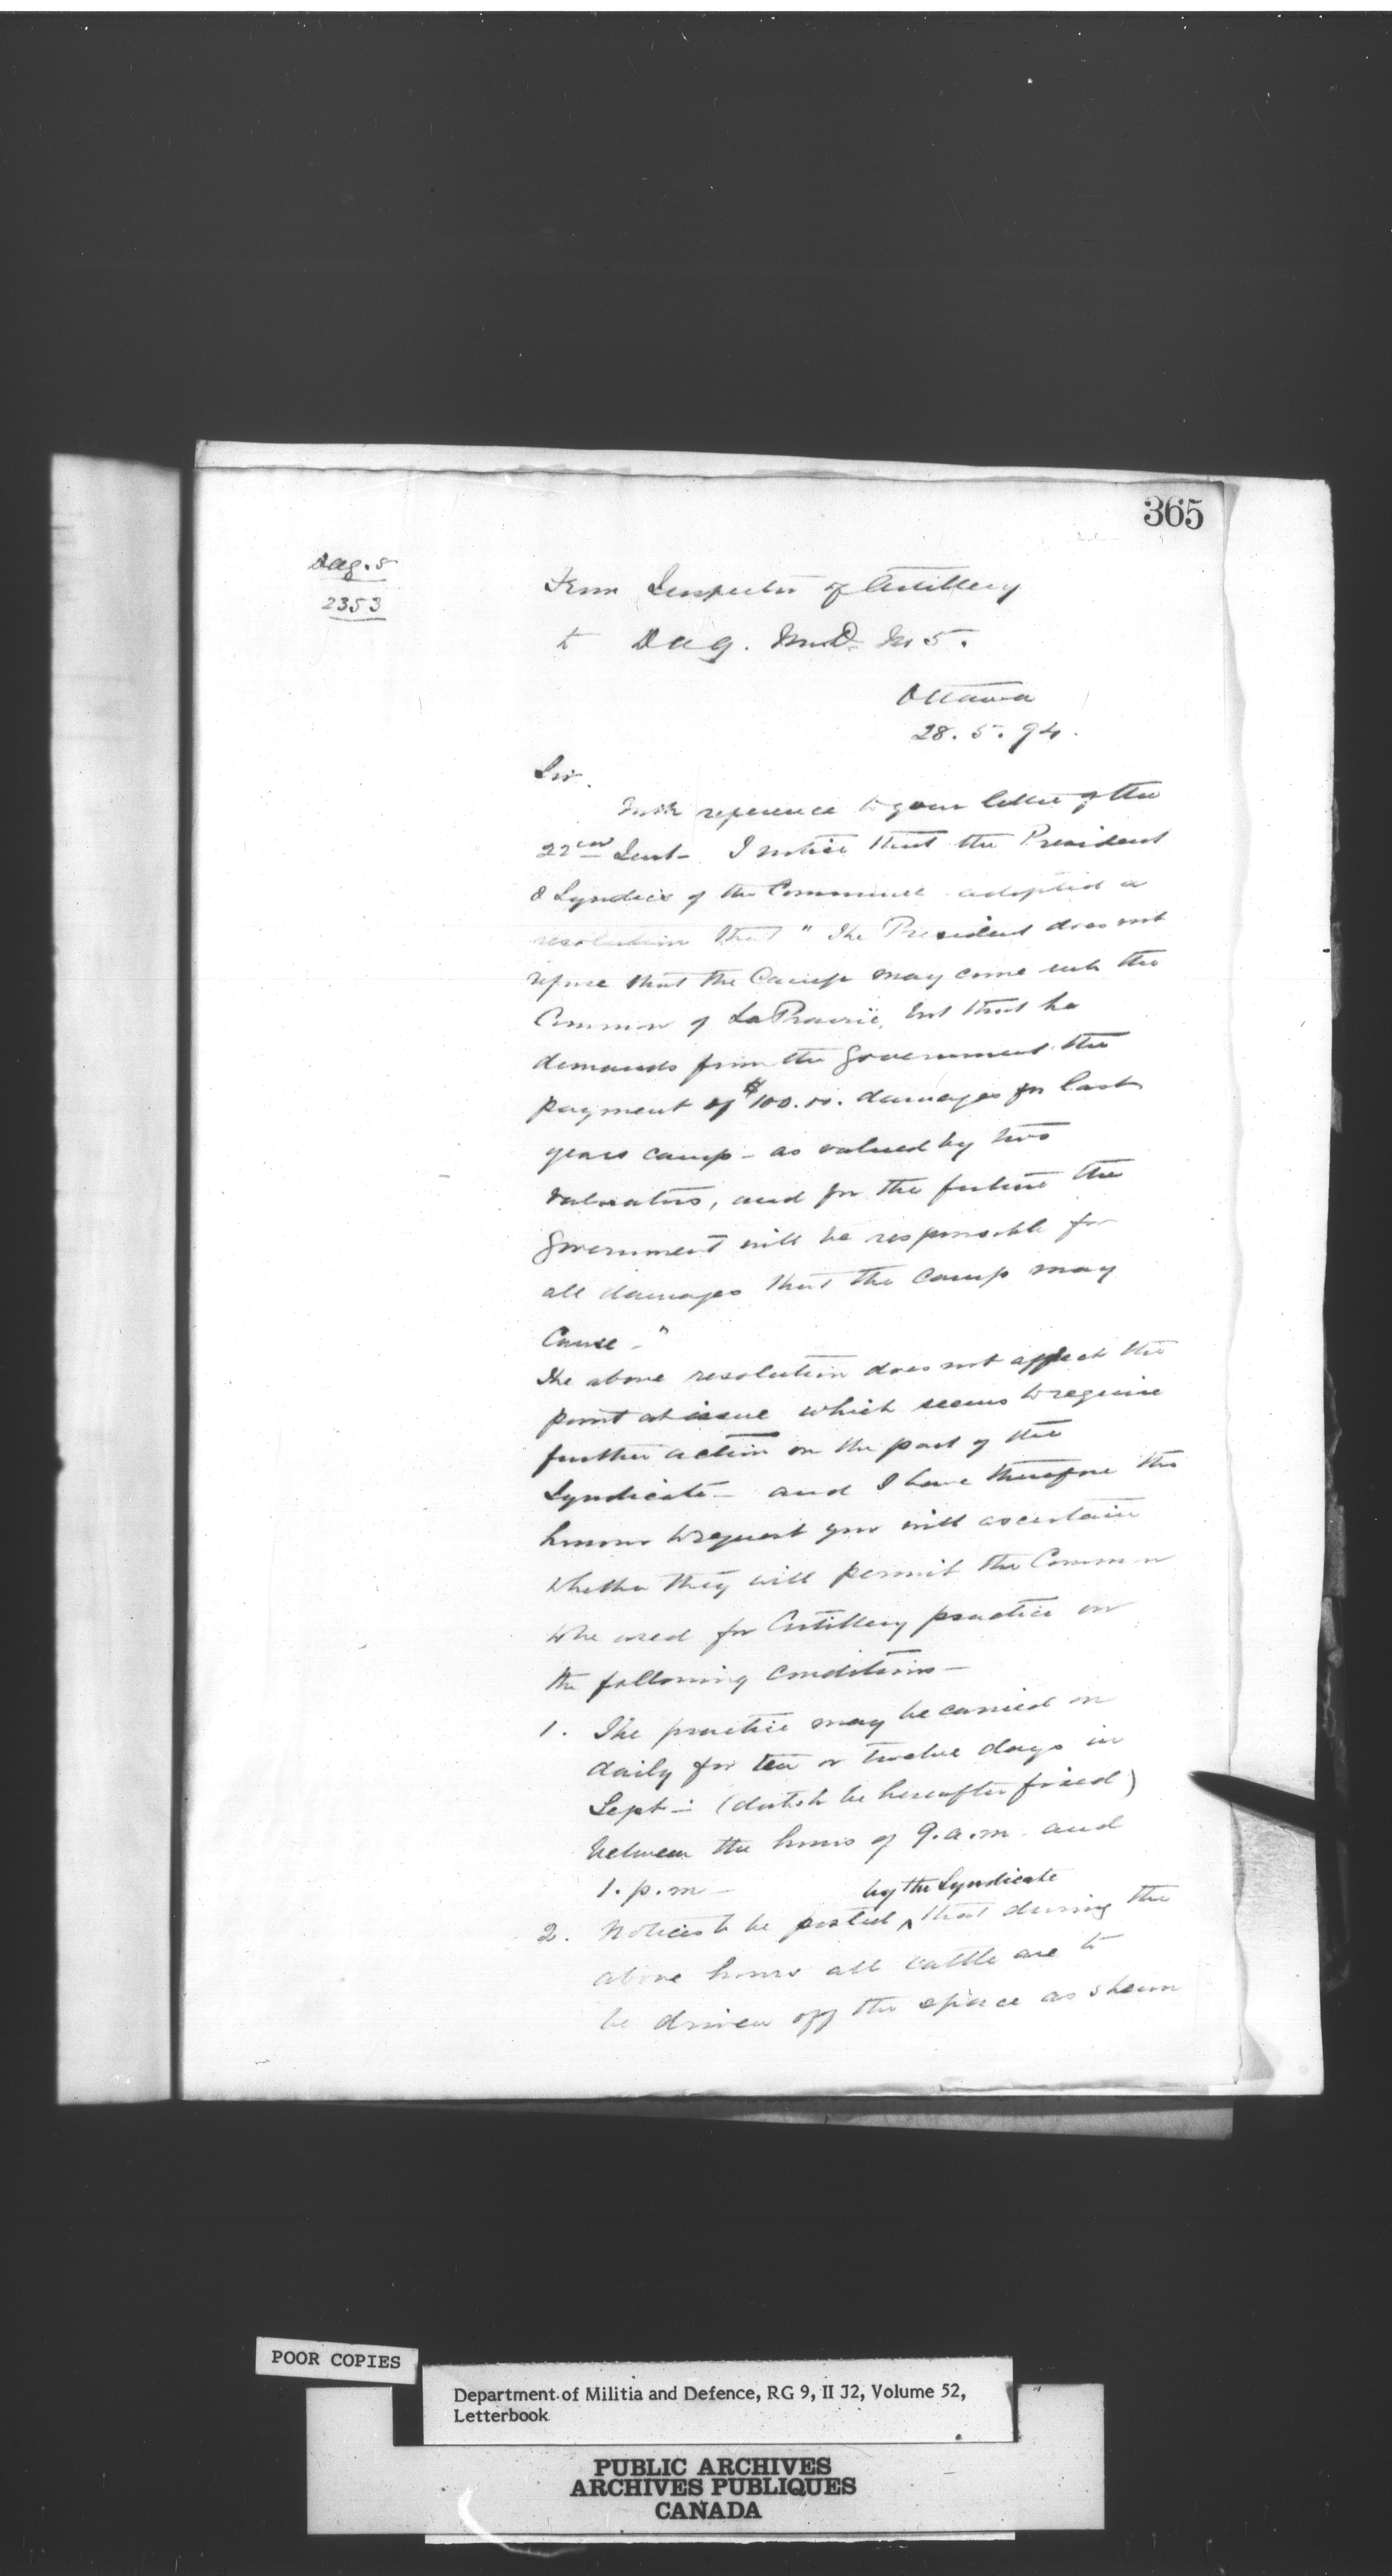 365
Dag. 5
2353
From Inspector of Artillery
to Dag. M.D. No 5.
Ottawa
28. 5. 94.
Sir.
With reference to your letter of the
22nd Inst- I notice that the President
& Syndics of the Commune adopted a
resolution that " The President does not
refuse that the Camp may come into the
Common of LaPrairie, but that he
demands from the Government the
payment of $100.00. damages for last
years camp - as valued by two
valuators, and for the future the
Government will be responsible for
all damages that the Camp may
Cause - "
The above resolution does not affect the
point at issue which seems to require
further action on the part of the
Syndicate - and I have therefore the
honour to request you will ascertain
whether they will permit the Common
to be used for Artillery practice on
the following conditions -
1. The practice may be carried on
daily for ten or twelve days in
Sept - (date to be hereafter fixed)
between the hours of 9. a.m. and
1. p.m -
by the Syndicate
2. Notices to be posted ^ that during the
above hours all cattle are to
be driven off the space as shewn
POOR COPIES
Department of Militia and Defence, RG 9, II J2, Volume 52,
Letterbook
PUBLIC ARCHIVES
ARCHIVES PUBLIQUES
CANADA